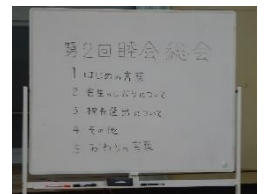 第2回睦会総会
1 はじめの言葉
2 について
3 について
4 その他
5 おわりの言葉